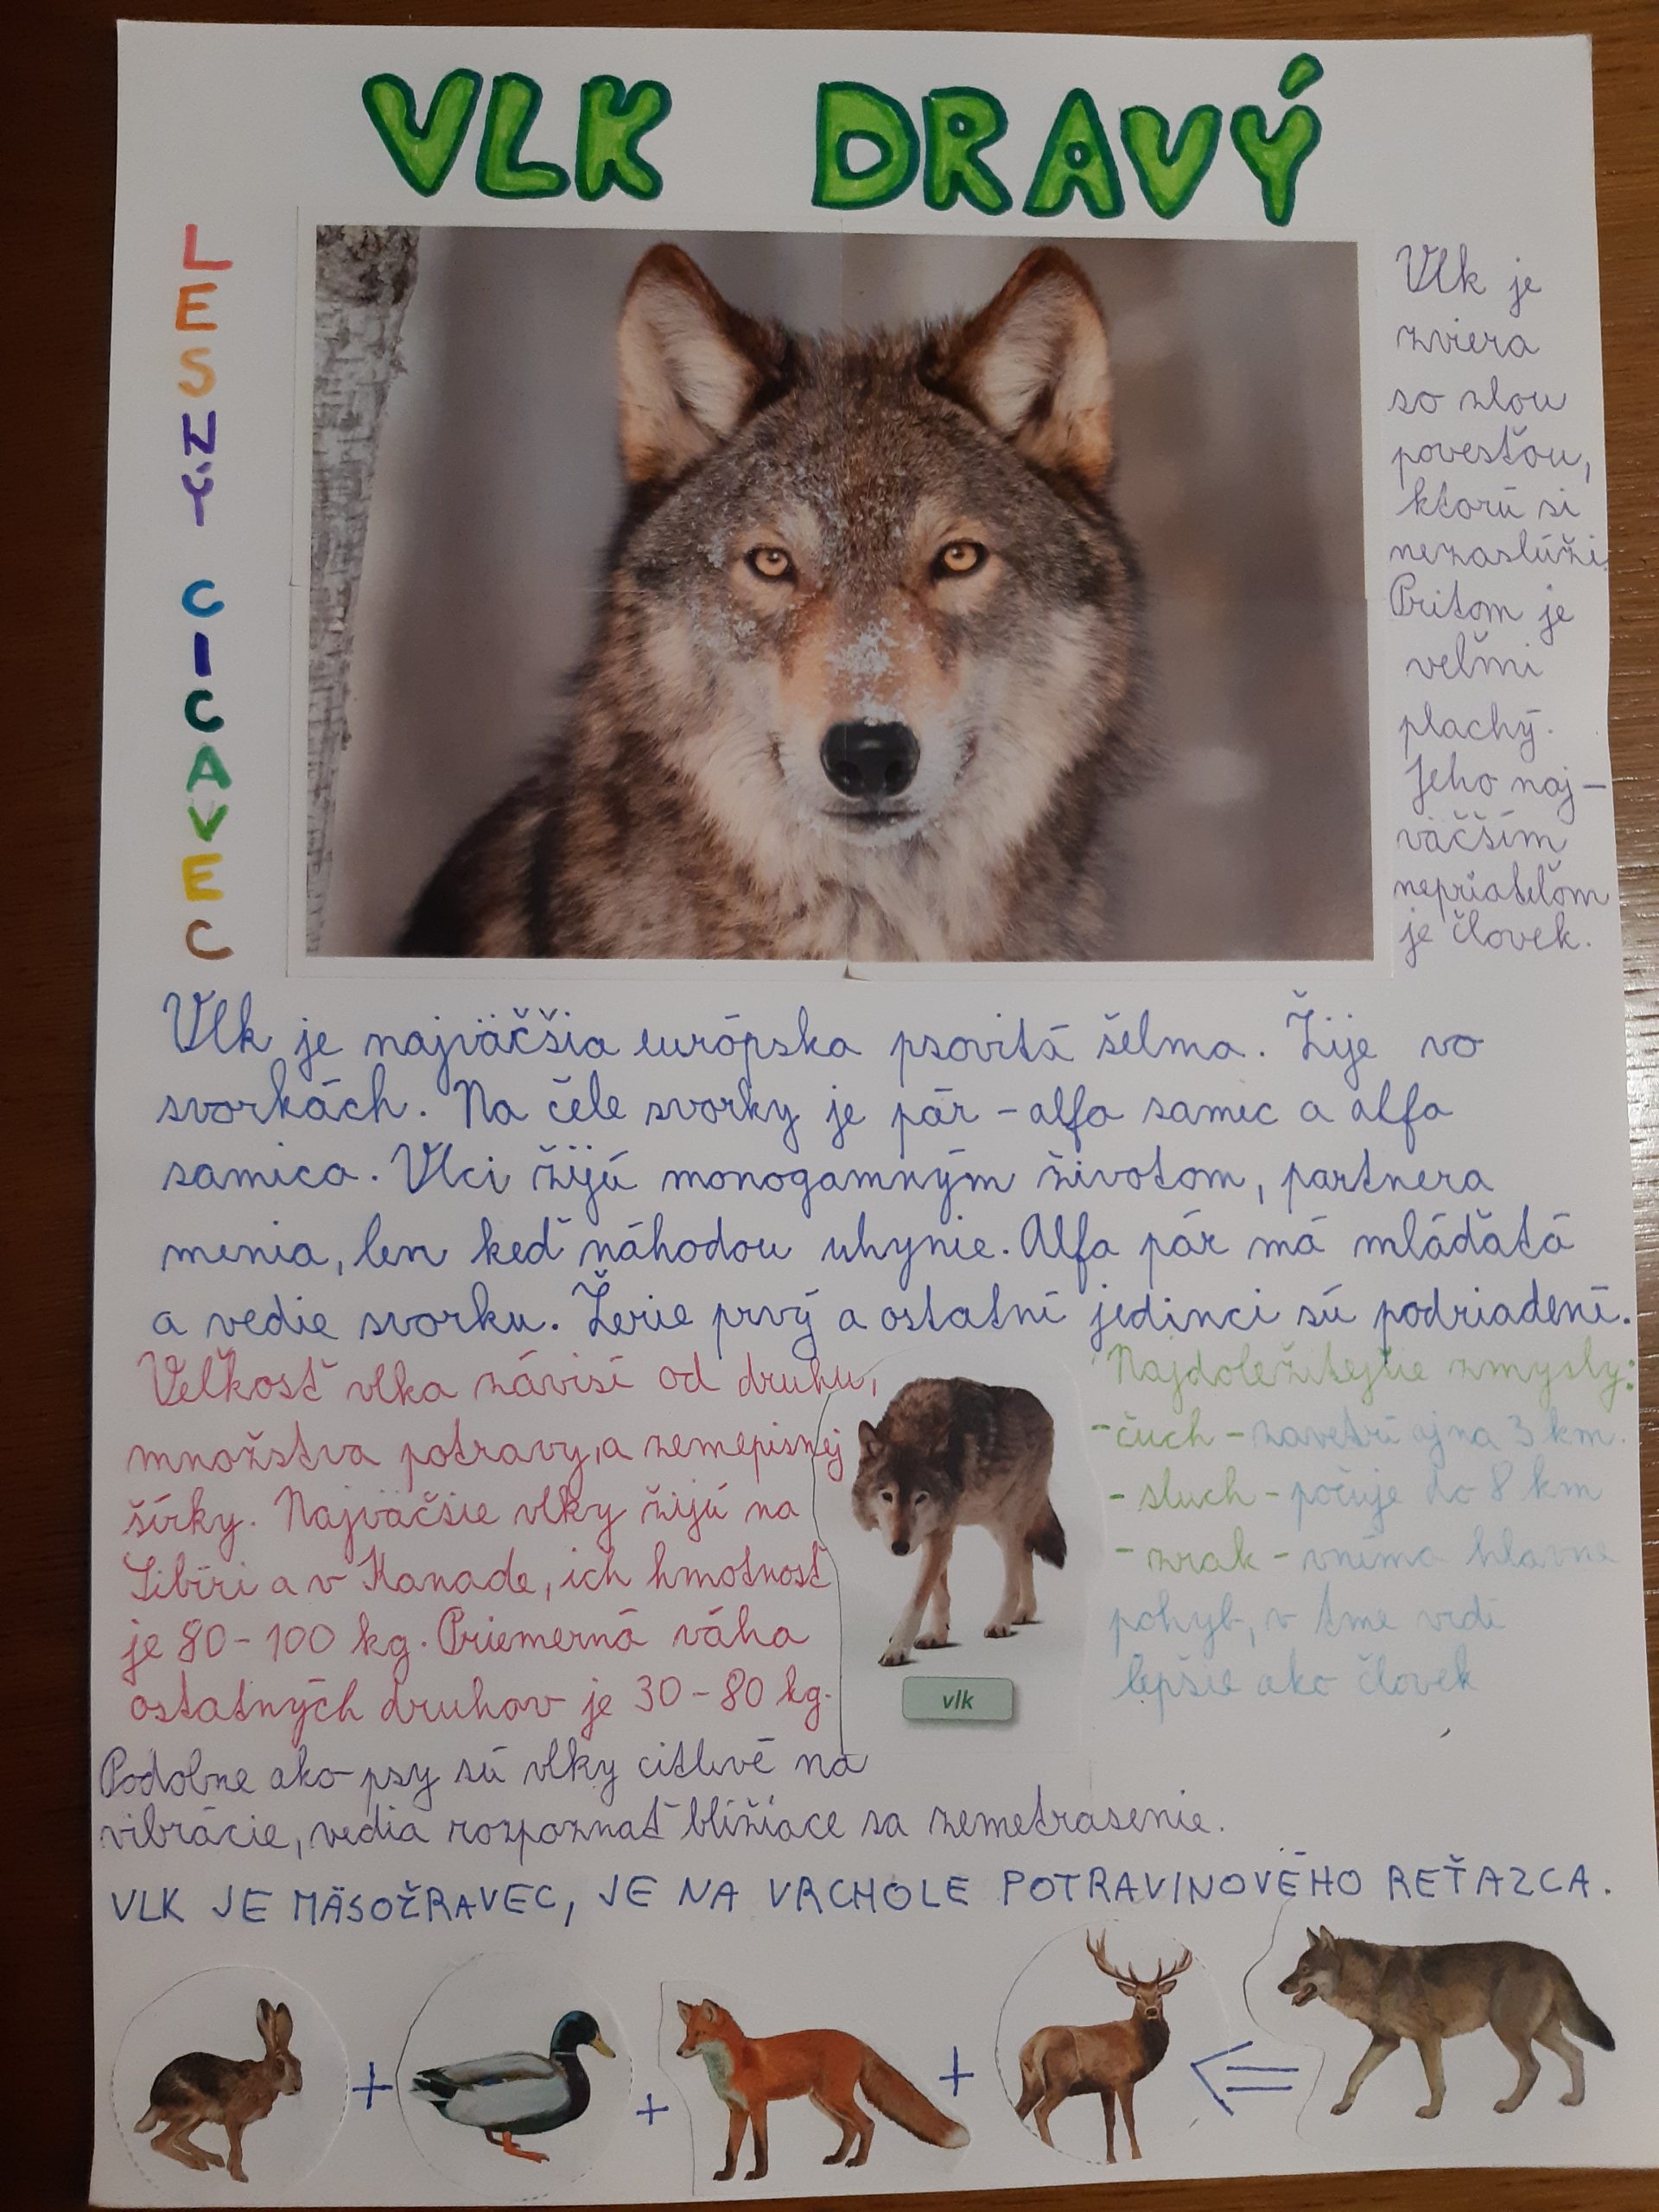 VLK DRAVÝ
LESNÝ CICAVEC
Vlk je
zviera
so zlou
povesťou,
ktorú si
nezaslúži.
Pritom je
veľmi
plachý.
Jeho naj-
väčším
nepriateľom
je človek.
Vlk je najväčšia európska psovitá šelma. Žije vo
svorkách. Na čele svorky je pár - alfa samec a alfa
samica. Vlci žijú monogamným životom, partnera
menia, len keď náhodou uhynie. Alfa pár má mláďatá
a vedie svorku. Žerie prvý a ostatní jedinci sú podriadení.
Veľkosť vlka závisí od druhu,
množstva potravy, a zemepisnej
šírky. Najväčsie vlky žijú na
Sibíri a v Kanade, ich hmotnosť
je 80-100 kg. Priemerná váha
ostatných druhov je 30-80 kg.
vlk
Najdoležitejšie zmysly:
- čuch - zavetrí aj na 3 km.
- sluch - počuje do 8 km
- zrak - vníma hlavne
pohyb, v tme vidí
lepšie ako človek
Podobne ako psy sú vlky citlivé na
vibrácie, vedia rozpoznať blížiace sa zemetrasenie.
VLK JE MÄSOŽRAVEC, JE NA VRCHOLE POTRAVINOVÉHO REŤAZCA.
+ + + <=